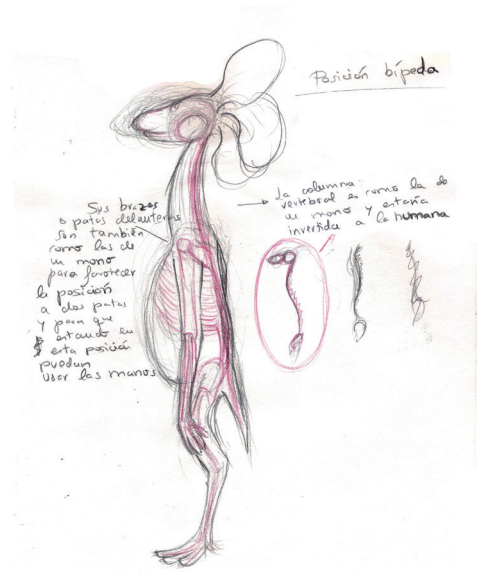 Posición bípeda
Sus brazos
o patas delanteras
son también
como las de
un mono
para favorecer
la posición
a dos patas
y para que
estando en
esta posición
puedan
usar las manos
→ La columna
vertebral es como la de
un mono y estaría
invertida a la humana